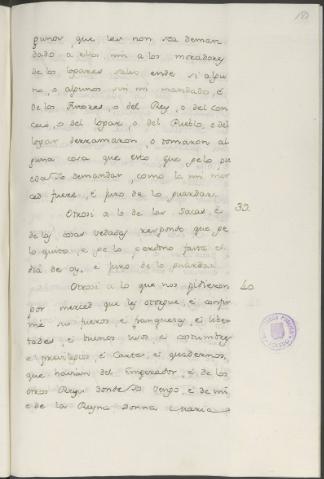 gunos, que les non sea deman
dado a ellos nin a los moradores
de los logares salvo ende si algu
no, o algunos sin mi mandado, é
de los Tutores, o del Rey, o del con
cejo, o del logar, o del Pueblo, o del
logar derramaron, o tomaron al
guna cosa que esto que gelo pue
dan demandar, como la mi mer
ced fuere, é juro de lo guardar.
Otrosi a lo de las Sacas, é 39.
de las cosas vedadas respondo que ge
lo quito, e ge lo perdono fasta el
dia de oy, e juro de lo guardar.
Otrosi a lo que nos pidieron 40
por merced que les otorgue, é confir
me sus fueros, é franquezas, é liber
tades, é buenos usos, é costumbres
e previlegios, é Cartas, é quadernos,
que havian del Emperador, é de los
otros Reyes donde Yo vengo, é de mi
e de la Reyna Donna Maria